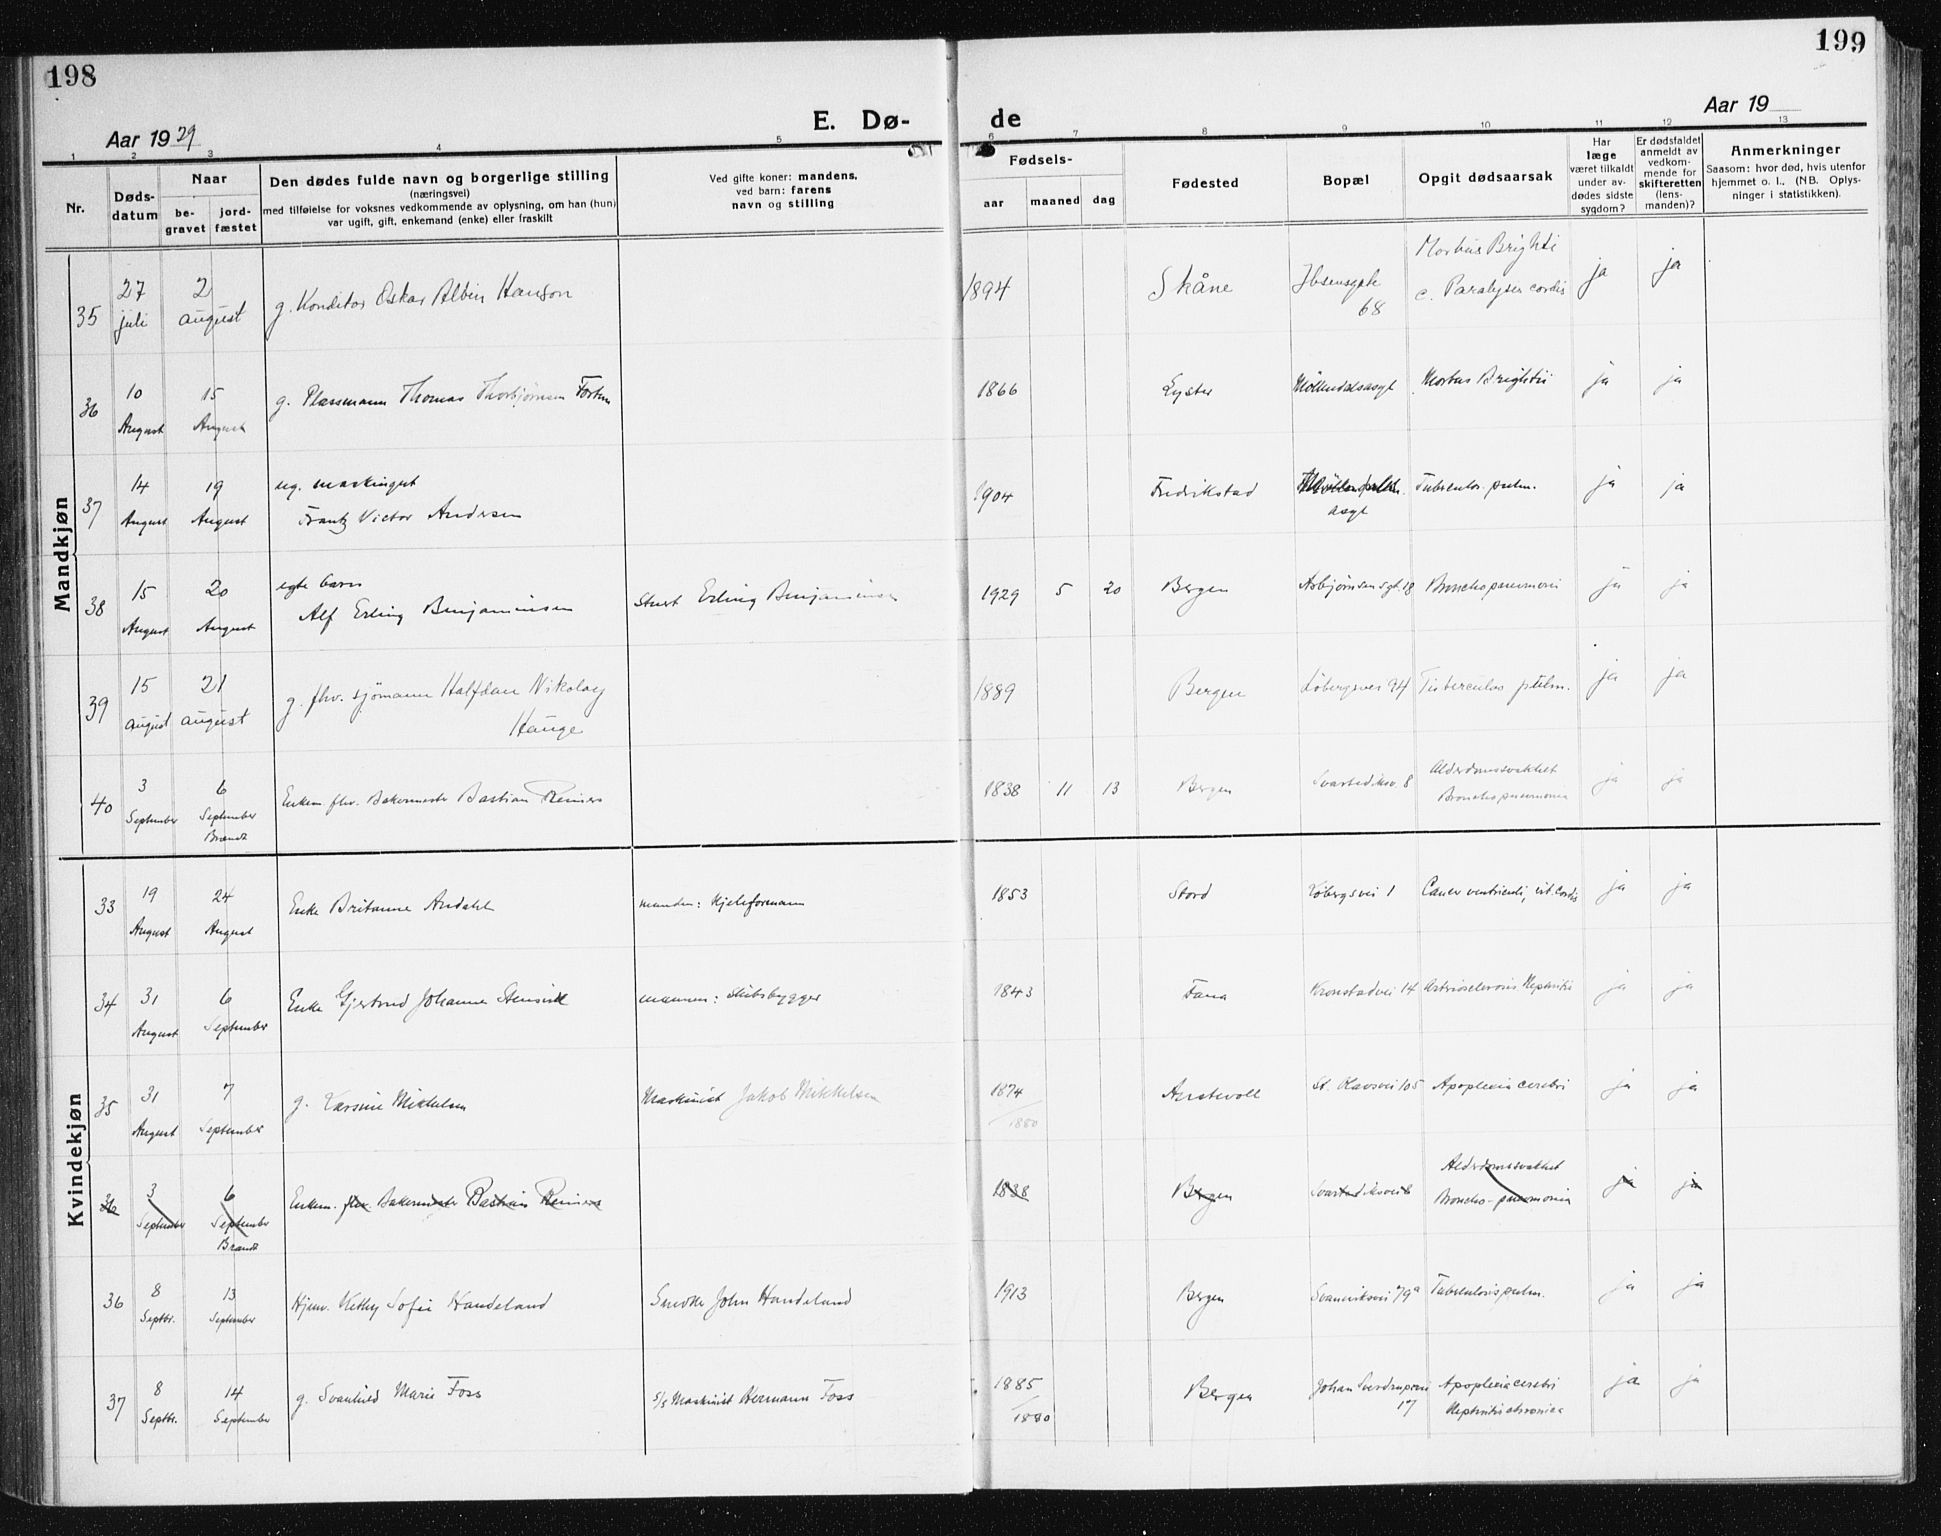 198
199
Aar 1929
E. Dø-
de
Aar 19
1 2 3 4 5 6 7 8 9 10 11 12 13
Nr.
Døds-
datum
Naar
be-
gravet
jord-
fæstet
Den dødes fulde navn og borgerlige stilling
(næringsvei)
med tilføielse for voksnes vedkommende av oplysning, om han (hun)
var ugift, gift, enkemand (enke) eller fraskilt
Ved gifte koner: mandens,
ved barn: farens
navn og stilling
Fødsels-
aar
maaned
dag
Fødested
Bopæl
Opgit dødsaarsak
Har
læge
været tilkaldt
under av-
dødes sidste
sygdom?
Er dødsfaldet
anmeldt av
vedkom-
mende for
skifteretten
(lens-
manden)?
Anmerkninger
Saasom: hvor død, hvis utenfor
hjemmet o. l., (NB. Oplys-
ninger i statistikken).
Mandkjøn
35 27 juli 2 august g. Konditor Oskar Albin Hanson 1894 Skåne Ibsensgate 68 Morbus Brighti c. Paralysis cordis ja ja
36 10 August 15 August g. Plassmann Thomas Thorbjørnsen Fortun 1866 Lyster Møllendalsasyl Morbus Brightii ja ja
37 14 August 19 August ug. maskingut
Frantz Victor Andersen 1904 Fredrikstad asyl Tuberculos. pulm. ja ja
38 15 August 20 August egte barn
Alf Erling Benjaminsen Erling Benjaminsen 1929 5 20 Bergen Asbjørnsensgt. 18 Bronchopneumoni ja ja
39 15 august 21 august g. fhv. sjømann Halfdan Nikolay
Hauge 1889 Bergen Løbergsvei 94 Tuberculos pulm. ja ja
40 3 September 6 September Brændt Enkem. fhv. Bakermester Bastian Reimers 1838 11 13 Bergen Svartediksv. 8 Alderdomssvakhet
Bronchopneumonia ja ja
Kvindekjøn
33 19 August 24 August Enke Britanne Andahl manden: Kjeleformann 1853 Stord Løbergsvei 1 Cancer ventriculi, vit. cordis ja ja
34 31 August 6 September Enke Gjertrud Johanne mannen: Skibsbygger 1843 Fana Kronstadvei 14 Artriosclerosis Nephritis ja ja
35 31 August 7 September g. Larsine Mikkelsen Maskinist Jakob Mikkelsen 1874
1880 Austevoll St. Olavsvei 105 Apoplexia cerebri ja ja
36 3 September 6 September Brændt Enkem. fhv. Bakermester Bastian Reimers 1838 Bergen Svartediksvei 8 Alderdomssvakhet
Broncho-pneumonia ja ja
36 8 Septbr. 13 September Hjemv. Kethy Sofie Handeland Snedker John Handeland 1913 Bergen Svaneviksvei 79a Tuberculosis pulm. ja ja
37 8 Septbr. 14 September g. Svanhild Marie Foss s/s Maskinist Hermann Foss 1885
1880 Bergen Johan Sverdrupsvei 17 Apoplexia cerebri
Nephritis chronica ja ja